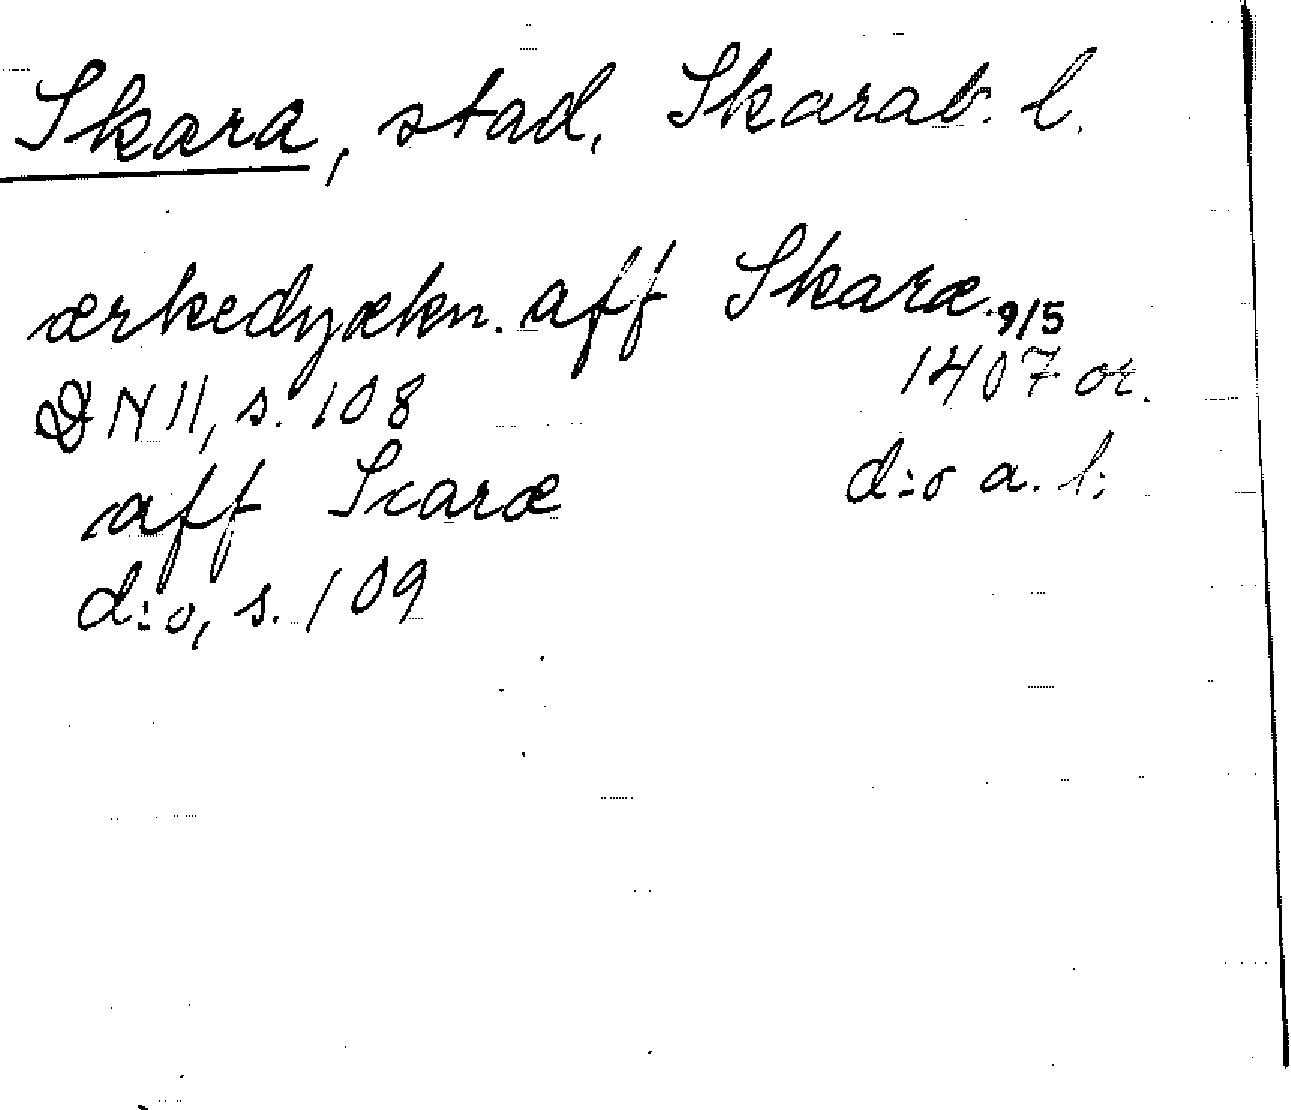 Skara, stad, Skarab. l.
ærkedyækn. aff Skaræ. 9/5
DN II, s. 108 1407 or.
aff Scaræ d:o a. l:
d:o, s. 109